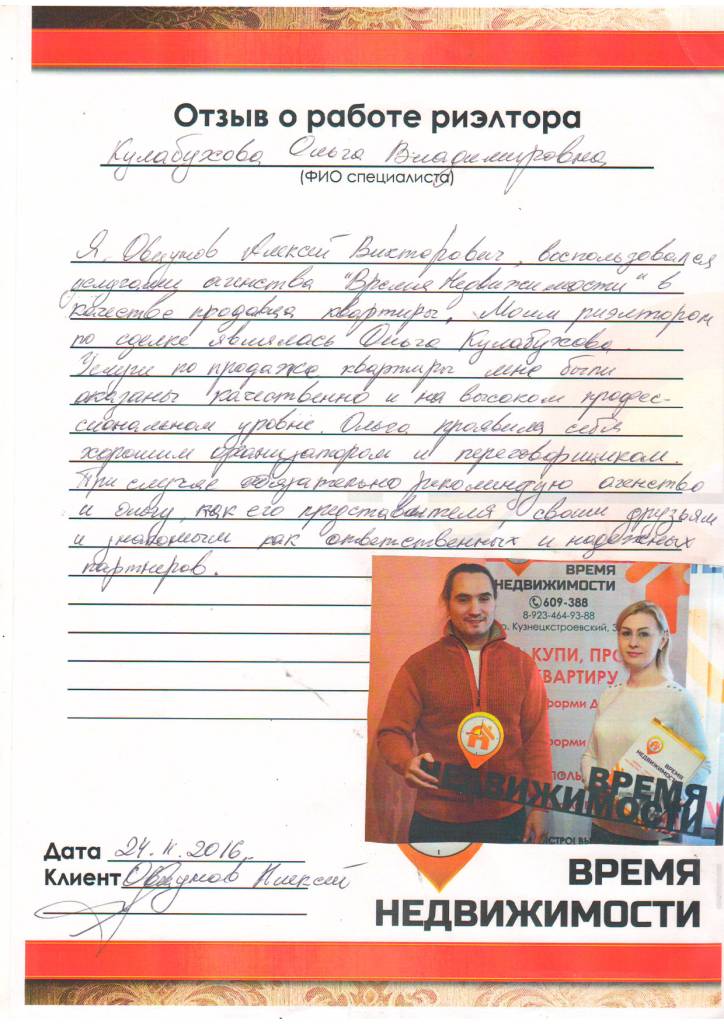 Отзыв о работе риэлтора
Кулабухова Ольга Владимировна
(ФИО специалиста)
Я, Алексей Викторович, воспользовался
услугами агенства "Время Недвижимости" в
качестве продавца квартиры. Моим риэлтором
по сделке являлась Ольга Кулабухова.
Услуги по продаже квартиры мне были
оказаны качественно и на высоком профес-
сиональном уровне. Ольга проявила себя
хорошим организатором и переговорщиком.
При случае обязательно рекомендую агенство
и Ольгу, как его представителя, своим друзьям
и знакомым как ответственных и надежных
партнеров.
ВРЕМЯ
НЕДВИЖИМОСТИ
609-388
8-923-464-93-88
р. Кузнецкстроевский, 3
КУПИ, ПРО
КВАРТИРУ
форми Д
форми
ПОЛЬ
ВРЕМЯ
НЕДВИЖИМОСТИ
ВРЕМЯ
НЕДВИЖИМОСТИ
Дата 24.11.2016
Клиент Алексей
ВРЕМЯ
НЕДВИЖИМОСТИ